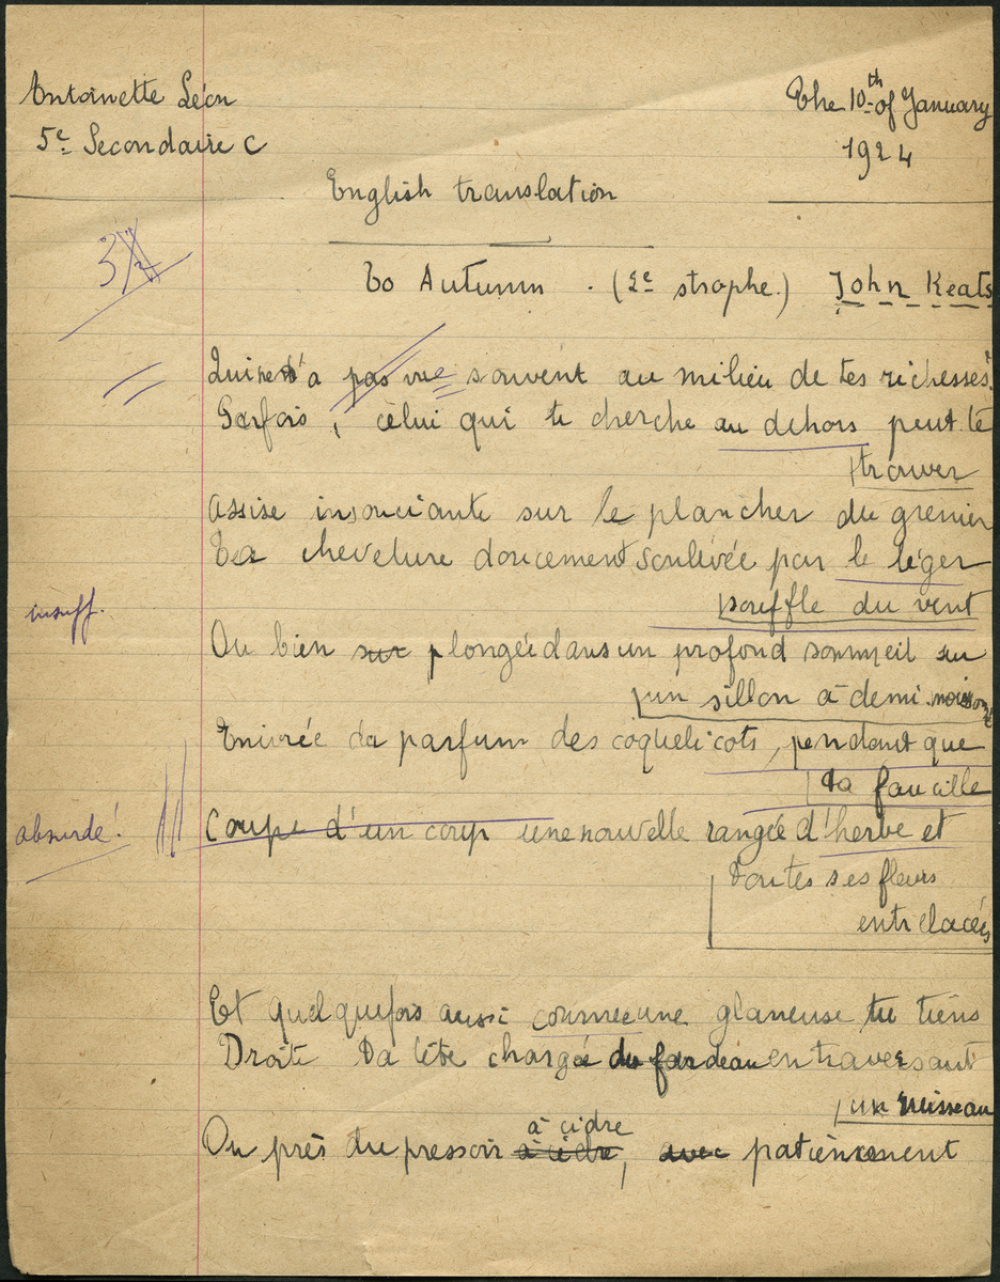 Antoinette Léon
The 10th of January
5e Secondaire C
1924
English translation
3½
To Autumn . (2e strophe.) John Keats
Qui ne t'a pas vue souvent au milieu de tes richesses.
Parfois, celui qui te cherche au dehors peut te
trouver
Assise insouciante sur le plancher du grenier
Ta chevelure doucement soulevée par le léger
souffle du vent
insuff.
Ou bien sur plongée dans un profond sommeil su
un sillon à demi moissonné
Enivrée du parfum des coquelicots, pendant que
ta faucille
absurde!
Coupe d'un coup une nouvelle rangée d'herbe et
toutes ses fleurs
entrelacées
Et quelquefois aussi comme une glaneuse tu tiens
Droite ta tête chargée du fardeau en traversant
un ruisseau
à cidre
Ou près du pressoir à cidre, avec patiemment